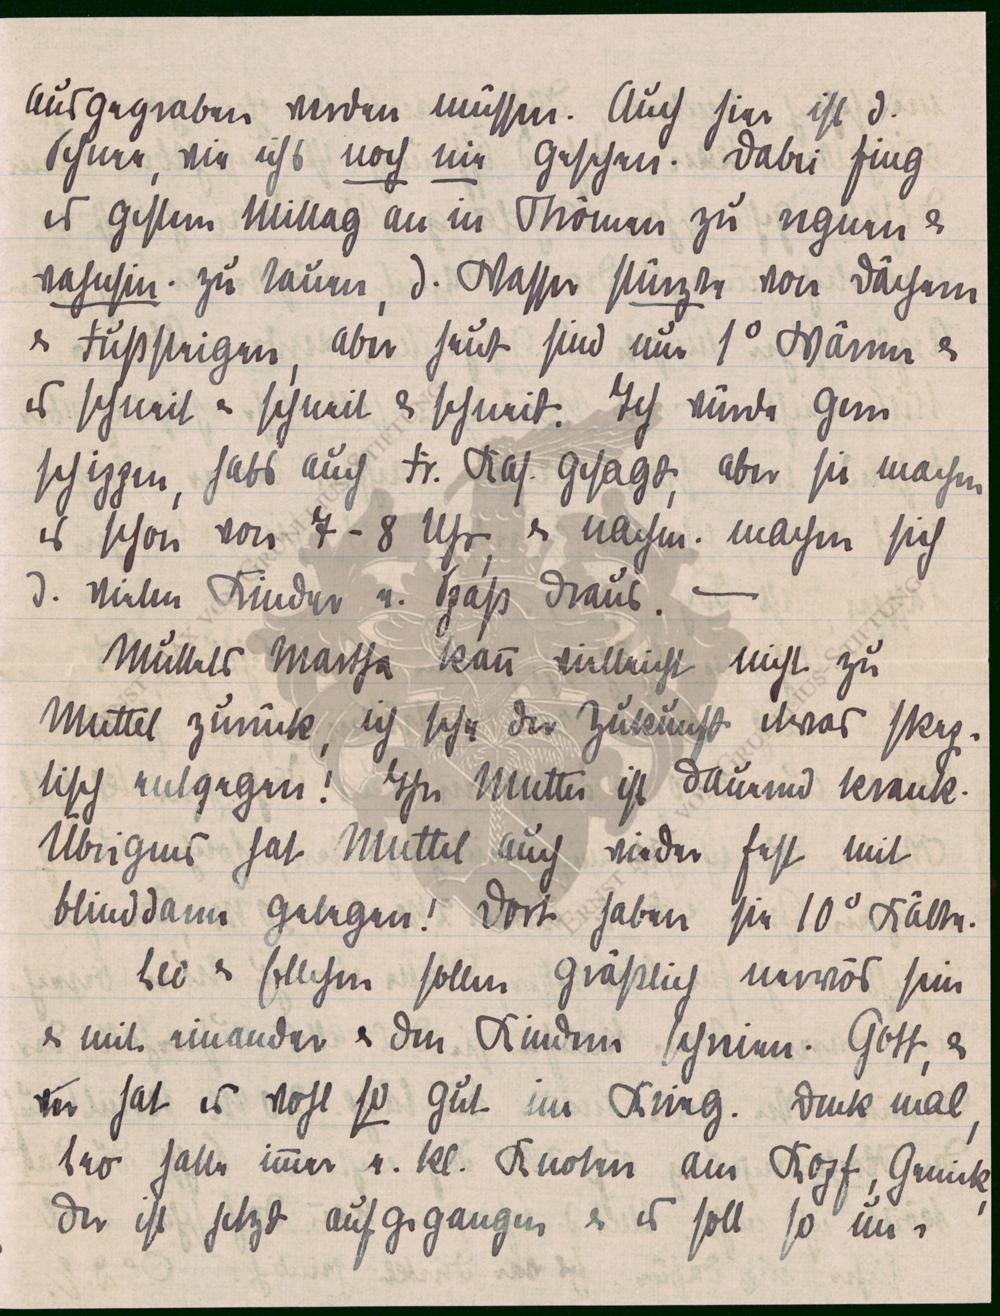 ausgegraben werden müssen. Auch hier ist d.
Schnee, wie ichs noch nie gesehen. Dabei fing
es gestern Mittag an in Strömen zu regnen &
wahnsin. zu tauen, d. Wasser stürzte von Dächern
& Fußsteigen, aber heut sind nur 1° Wärme &
es schneit & schneit & schneit. Ich würde gern
schippen, habs auch Fr. Kas. gesagt, aber sie machen
es schon von 7-8 Uhr, & nachm. machen sich
d. vielen Kinder e. Spaß draus. —
Muttels Martha kann̄ vielleicht nicht zu
Muttel zurück, ich sehe der Zukunft etwas skep-
tisch entgegen! Ihre Mutter ist dauernd krank.
Übrigens hat Muttel auch wieder fest mit
blinddarm gelegen! Dort haben sie 10° Kälte.
Leo & Ellchen sollen gräßlich nervös sein
& mit einander & den Kindern schreien. Gott, &
wer hat es wohl so gut im Krieg. Denk mal,
Leo hatte im̄er e. kl. Knoten am Kopf, Genick,
der ist jetzt aufgegangen & es soll so un-
ERNST VON VOLBORTH STIFTUNG